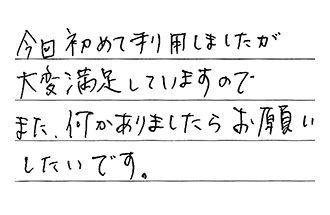 今回初めて利用しましたが
大変満足していますので
また、何かありましたらお願い
したいです。